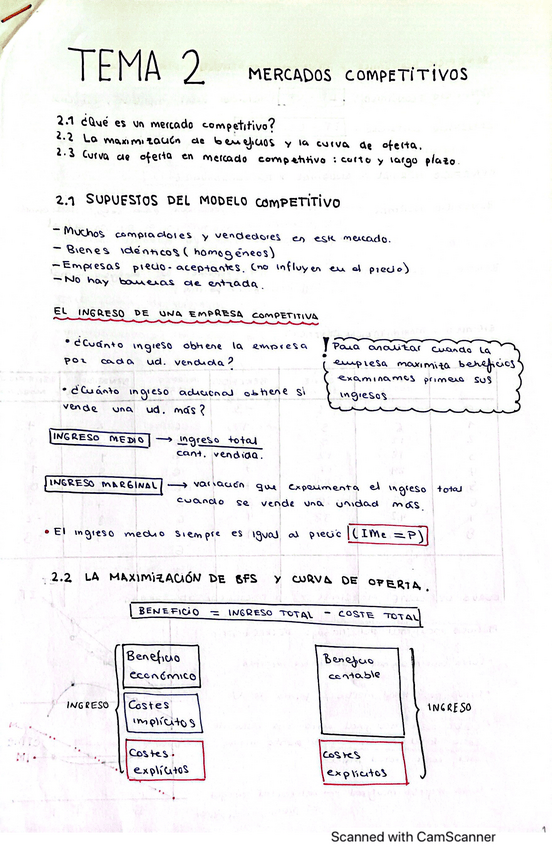 TEMA 2 MERCADOS COMPETITIVOS
2.1 ¿Qué es un mercado competitivo?
2.2 La maximización de beneficios y la curva de oferta.
2.3 Curva de oferta en mercado competitivo: corto y largo plazo.
2.1 SUPUESTOS DEL MODELO COMPETITIVO
- Muchos compradores y vendedores en este mercado.
- Bienes idénticos (homogéneos)
- Empresas precio-aceptantes. (no influyen en el precio)
- No hay barreras de entrada.
EL INGRESO DE UNA EMPRESA COMPETITIVA
• ¿Cuánto ingreso obtiene la empresa
por cada ud. vendida?
• ¿Cuánto ingreso adicional obtiene si
vende una ud. más?
! Para analizar cuando la
empresa maximita beneficios
examinamos primero sus
ingresos
INGRESO MEDIO → ingreso total
cant. vendida.
INGRESO MARGINAL → variación que experimenta el ingreso total
cuando se vende una unidad más.
• El ingreso medio siempre es igual al precio (IMe = P)
2.2 LA MAXIMIZACIÓN DE BFS Y CURVA DE OFERTA.
BENEFICIO = INGRESO TOTAL - COSTE TOTAL
INGRESO
Beneficio
económico
Costes
implícitos
Costes
explícitos
Beneficio
contable
Costes
explícitos
INGRESO
1
Scanned with CamScanner